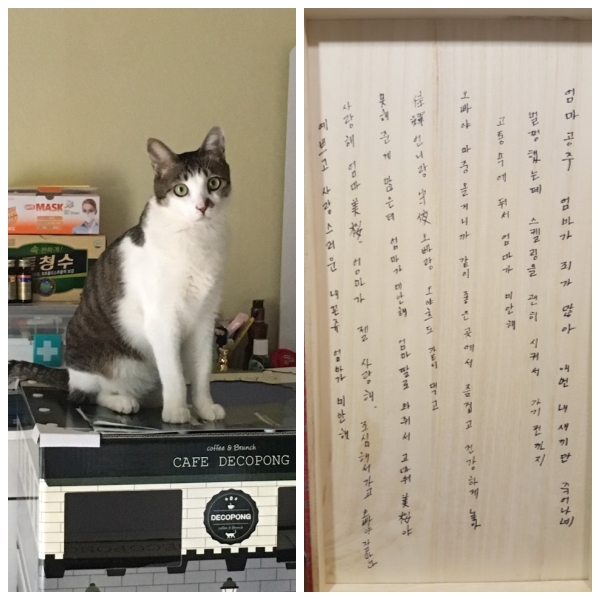 MASK
속 편하게!
청수
coffee & Brunch
CAFE DECOPONG
DECOPONG
coffee & Brunch
엄마 공주 엄마가 죄가 많아 매번 내 새끼만 죽어나네
멀쩡했는데 스켈링을 괜히 시켜서 가기 전까지
고통 속에 둬서 엄마가 미안해
오빠야 마중 올거니까 같이 좋은 곳에서 즐겁고 건강하게 놀아
언니랑 오빠랑 오야츠도 같이 먹고
못해준게 많은데 엄마가 미안해 엄마 딸로 와줘서 고마워 美桜야
사랑해 엄마 美桜, 엄마가 젤 사랑해. 조심해서 가고 오빠야
예쁘고 사랑스러운 내 공주 엄마가 미안해